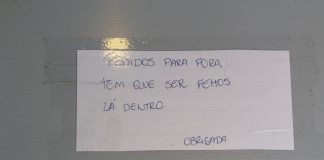 PEDIDOS PARA FORA,
TEM QUE SER FEITOS
LÁ DENTRO.
OBRIGADA